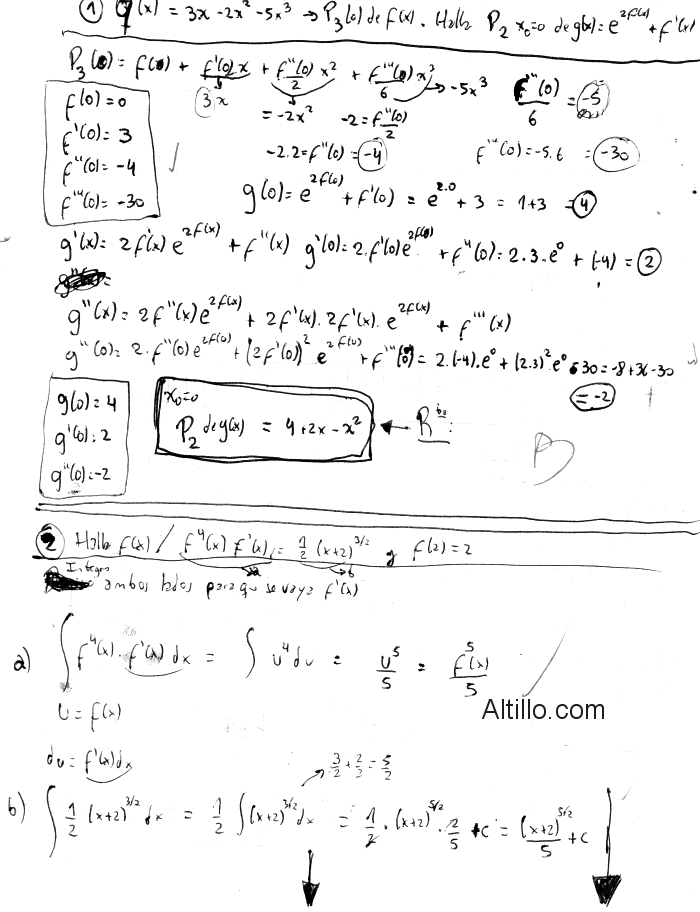 ① q(x) = 3x - 2x² - 5x³ → P₃(0) de f(x). Halla P₂ x₀=0 de g(x) = e^{2f(x)} + f'(x)
P₃(0) = f(0) + f'(0)x + f''(0)/2 x² + f'''(0)/6 x³ → -5x³ f'''(0)/6 = -5
3x = -2x² -2 = f''(0)/2
-2.2 = f''(0) = -4 f'''(0) = -5.6 = -30
f(0) = 0
f'(0) = 3
f''(0) = -4
f'''(0) = -30
g(0) = e^{2f(0)} + f'(0) = e^{2.0} + 3 = 1+3 = 4
g'(x) = 2f'(x) e^{2f(x)} + f''(x) g'(0) = 2.f'(0)e^{2f(0)} + f''(0) = 2.3.e⁰ + (-4) = 2
g''(x) = 2f''(x)e^{2f(x)} + 2f'(x).2f'(x).e^{2f(x)} + f'''(x)
g''(0) = 2.f''(0)e^{2f(0)} + (2f'(0))² e^{2f(0)} + f'''(0) = 2.(-4).e⁰ + (2.3)² e⁰ - 30 = -8 + 36 - 30
= -2
g(0) = 4
g'(0) = 2
g''(0) = -2
x₀=0
P₂ de g(x) = 4 + 2x - x² ← R^{ta}:
B
② Halla f(x) / f⁴(x) f'(x) = 1/2 (x+2)^{3/2} y f(2) = 2
a b
Integro ambos lados para que se vaya f'(x)
a) ∫ f⁴(x) . f'(x) dx = ∫ u⁴ du = u⁵/5 = f⁵(x)/5
u = f(x)
Altillo.com
du = f'(x)dx
3/2 + 2/2 = 5/2
b) ∫ 1/2 (x+2)^{3/2} dx = 1/2 ∫ (x+2)^{3/2} dx = 1/2 . (x+2)^{5/2} . 2/5 + c = (x+2)^{5/2}/5 + c